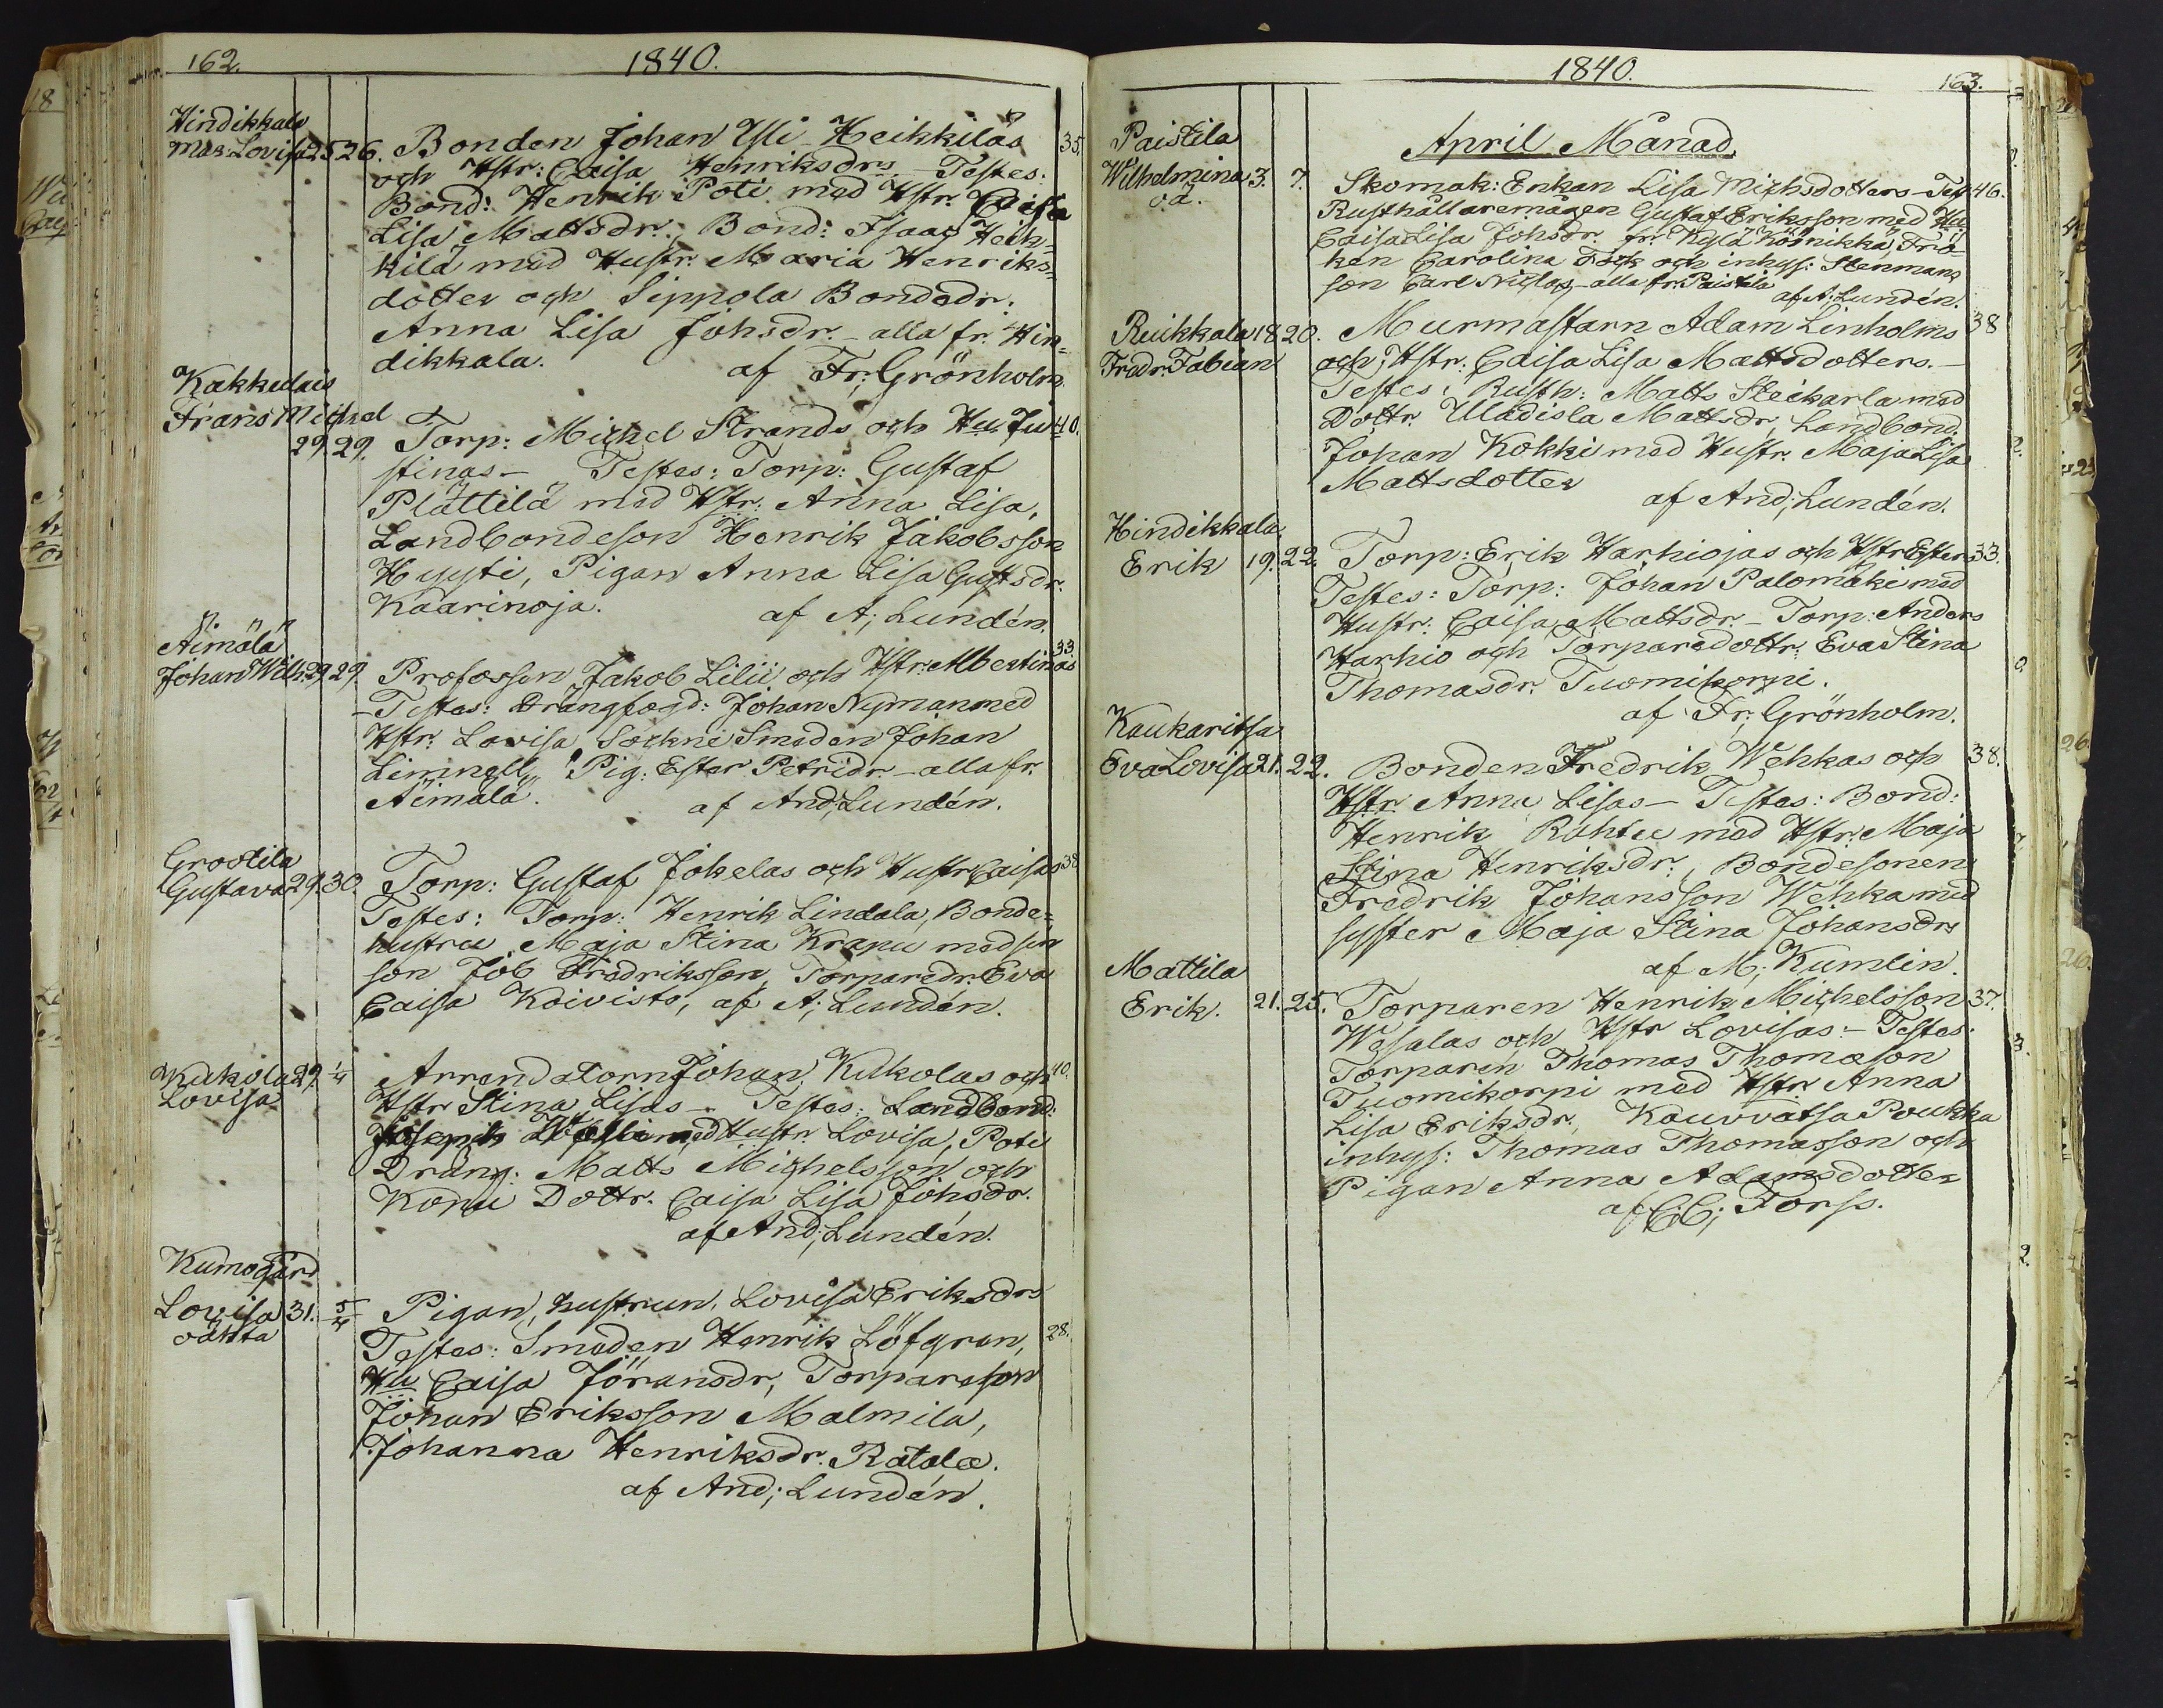 162.
1840.
Hindikkala
Maa: Lovisa 25 26. Bonden Johan Ylli-Heikkiläs 35.
och Hstr: Caisa Henriksdrs Testes:
Bond: Henrik Poti med Hstr. Caisa
Lisa Mattsdr., Bond: Isaac Heik-
kilä med Hustr. Maria Henriks-
dotter och Sippola Bondedr.
Anna Lisa Johsdr. - alla fr. Hin-
dikkala. af Fr; Grönholm.
Kakkulais
Frans Michel
29. 29. Torp: Michel Strands och Hu Ju- 40.
stinas - Testes: Torp: Gustaf
Plättilä med Hstr: Anna Lisa,
Landbondeson Henrik Jakobsson
Hyysti, Pigan Anna Lisa Gustsdr.
Kaarinoja. af A; Lundén.
Äimälä
Johan Wilh: 29 29. Profossen Jakob Lilii och Hstr: Albertinas 33.
- Testes: Drängfogd: Johan Nyman med
Hstr. Lovisa Sockne Smeden Johan
Limnell, Pig: Ester Petridr - alla fr.
Äimälä. af And; Lundén.
Grostila
Gustava 29. 30. Torp: Gustaf Jokelas och Hustr Caisas 38
Testes: Torp: Henrik Lindala, Bonde-
hustru Maja Stina Krapu med sin
son Job Fredriksson, Torparedr. Eva
Caisa Koivisto, af A; Lundén.
Kukola 29. 1/4 Arrendatorn Johan Kukolas och 40.
Lovisa Hstr Stina Lisas - Testes: Landbond:
Josepik med Hustr Lovisa, Poti
Dräng: Matts Michelsson och
Konu Dottr. Caisa Lisa Johsdr.
af And; Lundén.
Kumogård
Lovisa 31. 5/4 Pigan, hustrun, Lovisa Eriksdrs
oäkta Testes: Smeden Henrik Löfgren, 28.
Hu Caisa Jöransdr, Torpareson
Johan Eriksson Malmila,
Johanna Henriksdr. Ratala.
af And; Lundén.
1840.
163.
April Månad.
Paistila
Wilhelmina 3. 7. Skomak: Enkan Lisa Michsdotters - Tes 46.
oä. Rusthållaremågen Gustaf Eriksson med Hu
Caisa Lisa Johsdr. fr. Kylä Köönikkä, Frö-
ken Carolina Fock och inhys: Stenmans
son Carl Niclas - alla fr. Paistila
af A; Lundén.
Reikkala 18 20. Murmastarn Adam Linholms 38
Fredr: Fabian och Hstr: Caisa Lisa Mattsdotters. -
Testes: Rusth: Matts Steikarla med
Dottr. Uladisla Mattsdr, Landbond:
Johan Kokki med Hustr. Maja Lisa
Mattsdotter
af And; Lundén.
Hindikkala
Erik 19. 22. Torp: Erik Harhiojas och Hstr Esters 33.
Testes: Torp: Johan Palomäki med
Hustr. Caisa Mattsdr. - Torp: Anders
Harhio och Torparedottr: Eva Stina
Thomasdr. Tuomikorpi.
af Fr; Grönholm.
Kaukaritsa
Eva Lovisa 21. 22. Bonden Fredrik Wehkas och 38.
Hstr Anna Lisas - Testes: Bond:
Henrik Rohtu med Hstr: Maja
Stina Henriksdr:, Bondesonen
Fredrik Johansson Wehka med
syster Maja Stina Johansdr
af M; Kumlin.
Mattila
Erik. 21. 25. Torparen Henrik Michelsson 37.
Wesalas och Hstr Lovisas - Testes:
Torparen Thomas Thomason
Tuomikorpi med Hstr Anna
Lisa Eriksdr., Kauvatsa Poukka
inhys: Thomas Thomasson och
Pigan Anna Adamsdotter
af C: C; Forss.